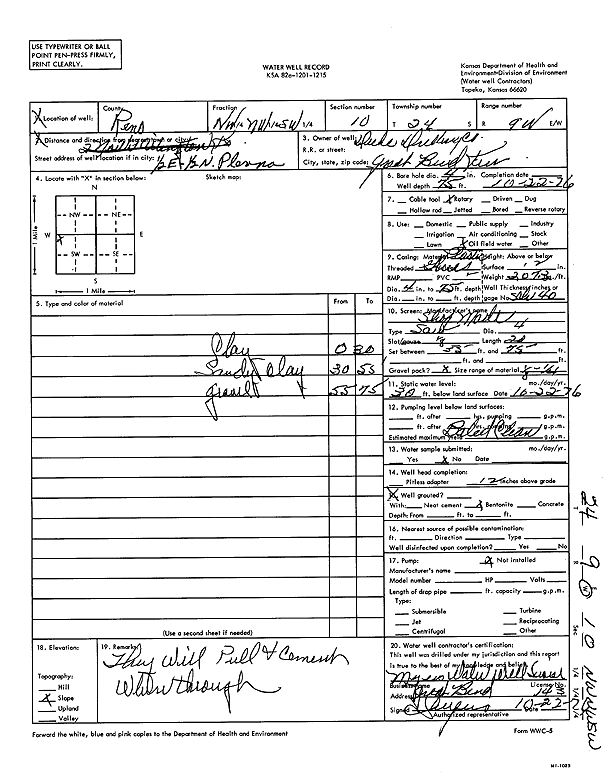 USE TYPEWRITER OR BALL
POINT PEN-PRESS FIRMLY,
PRINT CLEARLY.
WATER WELL RECORD
KSA 82a-1201-1215
Kansas Department of Health and
Environment-Division of Environment
(Water well Contractors)
Topeka, Kansas 66620
X Location of well:
County
Reno
Fraction
NW 1/4 NW 1/4 SW 1/4
Section number
10
Township number
T 24 S
Range number
R 9W E/W
Distance and direction from nearest town or city:
Street address of well location if in city: 1/2 E - 1/8 N. Plevna
3. Owner of well: Duke Drilling Co.
R.R. or street:
City, state, zip code: Great Bend
4. Locate with "X" in section below:
Sketch map:
N
NW NE
W X E
SW SE
S
1 Mile
1 Mile
6. Bore hole dia. in. Completion date
Well depth 75 ft. 10-22-76
7. Cable tool X Rotary Driven Dug
Hollow rod Jetted Bored Reverse rotary
8. Use: Domestic Public supply Industry
Irrigation Air conditioning Stock
Lawn X Oil field water Other
9. Casing: Material Plastic Height: Above or below
Threaded Surface 12 in.
RMP PVC Weight lbs./ft.
Dia. 4 in. to 75 ft. depth Wall Thickness: inches or
Dia. in. to ft. depth gage No.
5. Type and color of material
From To
Clay 0 30
Sandy Clay 30 55
gravel 55 75
10. Screen: Manufacturer's name
Shop Made
Type Saw Dia. 4
Slot/gauze 1/8 Length 20
Set between 55 ft. and 75 ft.
ft. and ft.
Gravel pack? X Size range of material
11. Static water level: mo./day/yr.
30 ft. below land surface Date 10-22-76
12. Pumping level below land surfaces:
ft. after hrs. pumping g.p.m.
ft. after hrs. pumping g.p.m.
Estimated maximum yield g.p.m.
13. Water sample submitted: mo./day/yr.
Yes X No Date
14. Well head completion:
Pitless adapter 12 inches above grade
X Well grouted?
With: Neat cement X Bentonite Concrete
Depth: From ft. to ft.
16. Nearest source of possible contamination:
ft. Direction Type
Well disinfected upon completion? Yes No
17. Pump: X Not installed
Manufacturer's name
Model number HP Volts
Length of drop pipe ft. capacity g.p.m.
Type:
Submersible Turbine
Jet Reciprocating
Centrifugal Other
(Use a second sheet if needed)
18. Elevation:
Topography:
Hill
X Slope
Upland
Valley
19. Remarks:
They Will Pull & Cement
When through
20. Water well contractor's certification:
This well was drilled under my jurisdiction and this report
is true to the best of my knowledge and belief.
Myers Water Well Service
Business name License No. 143
Address Great Bend
Signed Myers Date 10-22-
Authorized representative
Forward the white, blue and pink copies to the Department of Health and Environment
Form WWC-5
24
T
9
R
W
10
Sec
NW NW SW
1/4 1/4 1/4